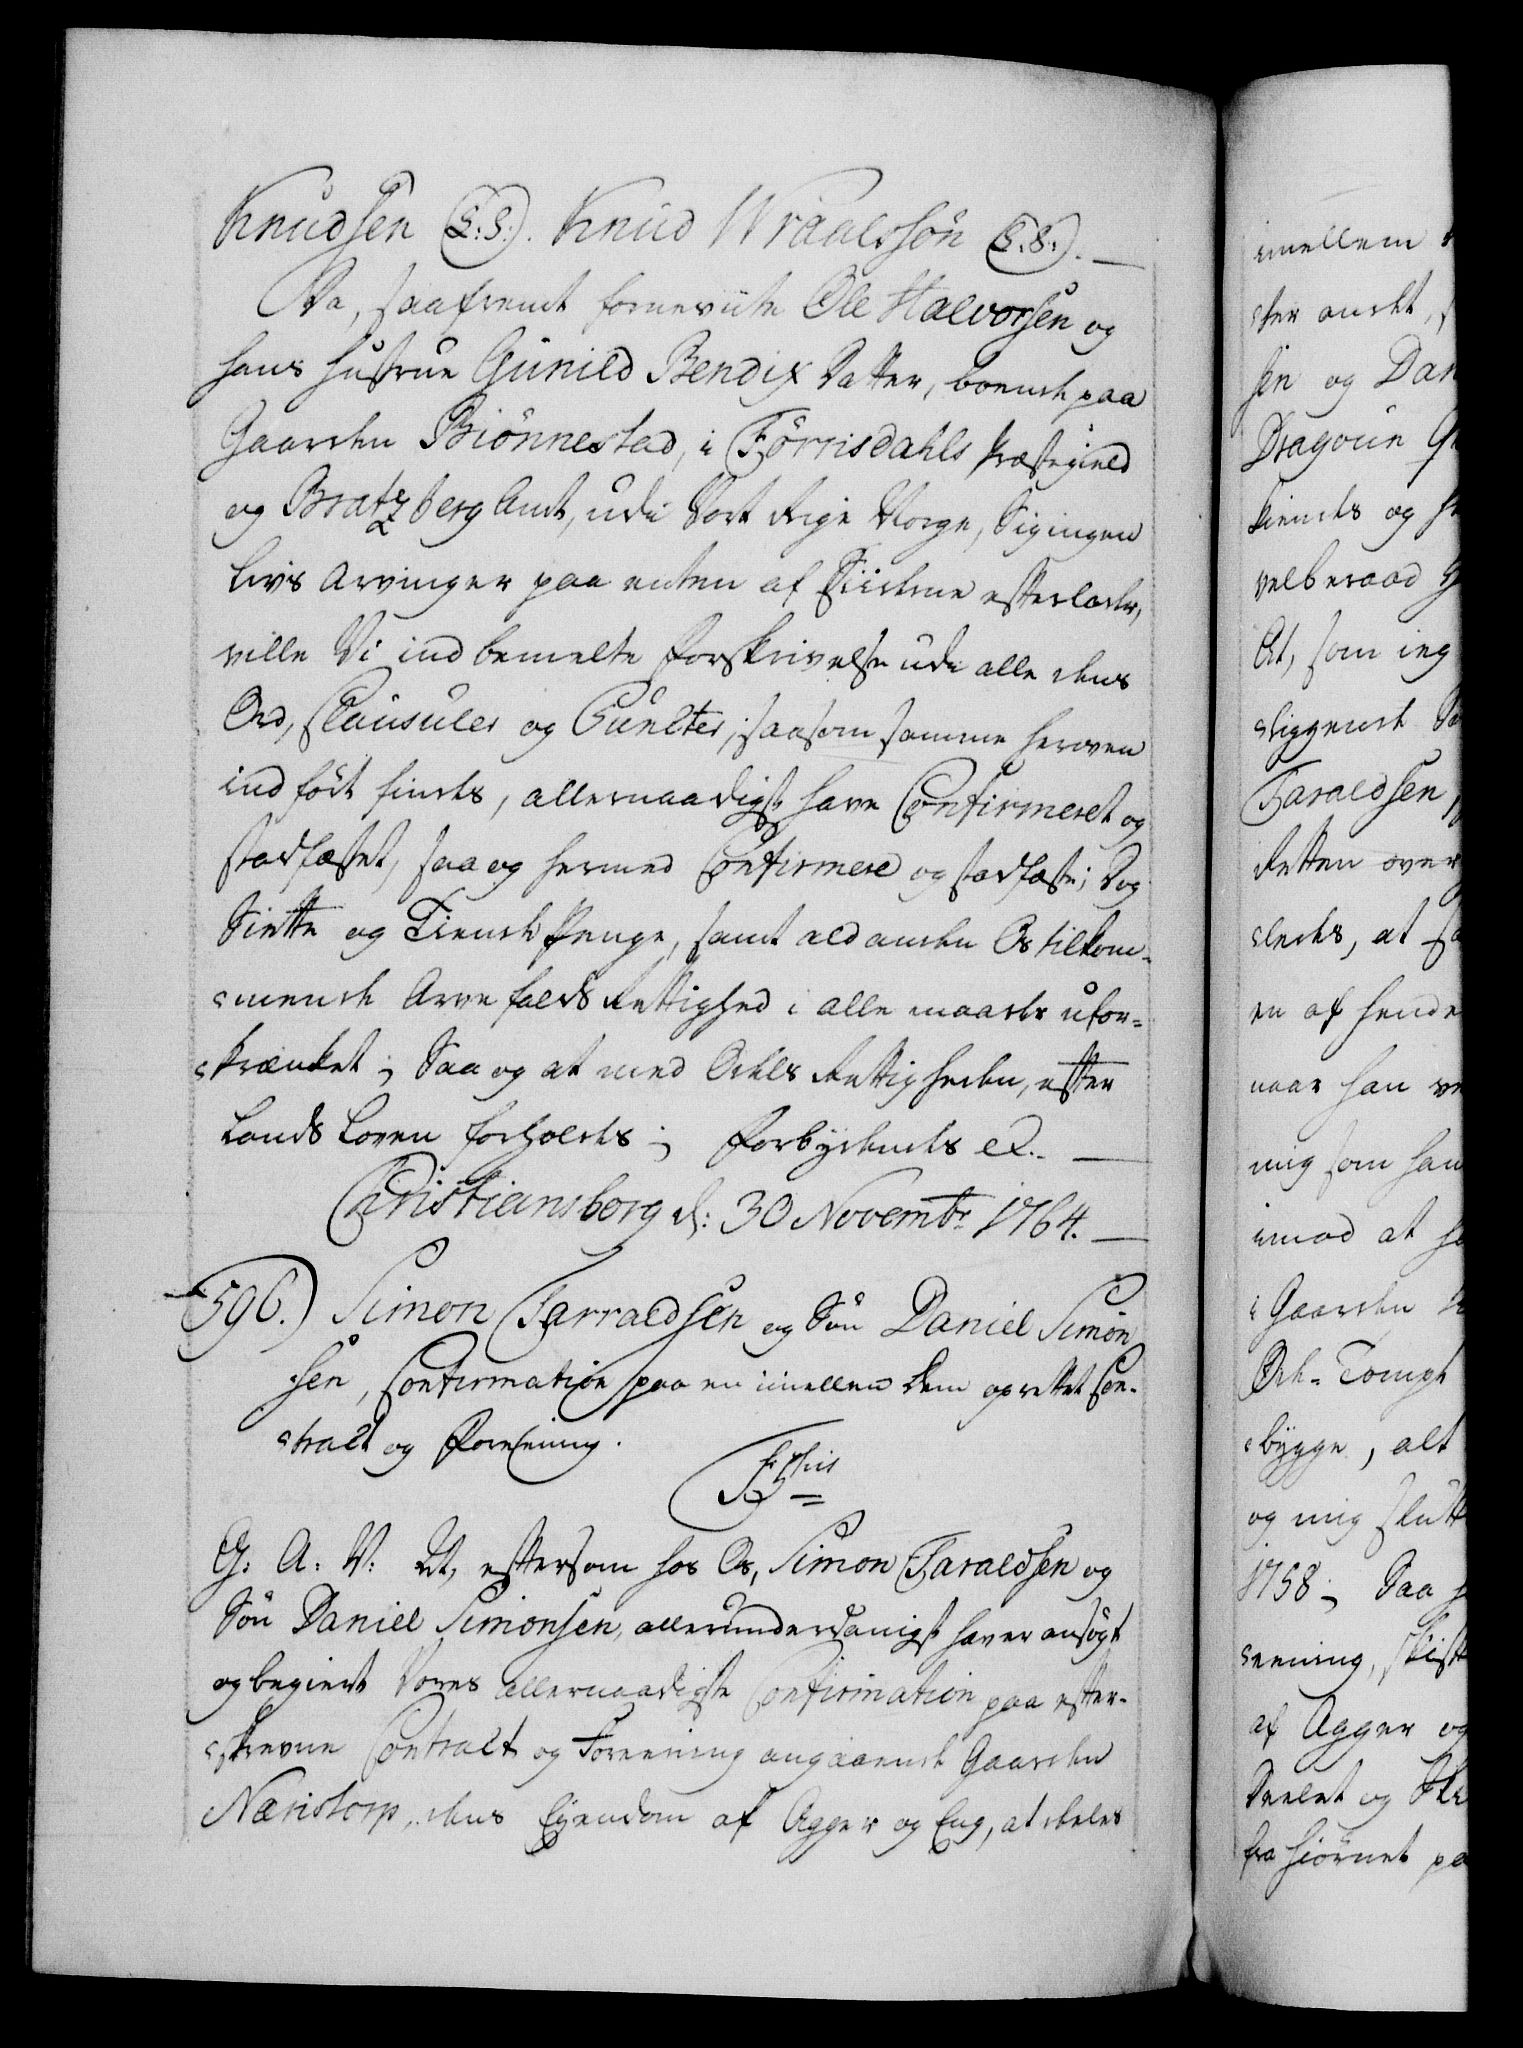 Knudsen (L:S:). Knud Wraalssøn (L:S:). —
Da, saafremt fornevnte Ole Halvorsen og
hans Hustrue Gunild Bendix Datter, boende paa
Gaarden Biönnestad, i Förrisdahls Præstegield
og Bratzberg Amt, udi Vort Rige Norge, Sig ingen
Livs Arvinger paa enten af Siiderne efterlader,
ville Vi ind bemelte Forskrivelse udi alle dens
Ord, Clausuler og Puncter, saasom samme heroven
indført findes, allernaadigst have Confirmeret og
stadfæstet, saa og hermed Confirmere og stadfæste; Dog
Siette og Tiende Penge, samt ald anden Os tilkom-
mende Arve falds Rettighed i alle maader ufor-
krænket; Saa og at med Odels Rettigheden, efter
Lands Loven forholdes; Forbydendes &. —
Christiansborg d: 30 Novembr 1764. —
596.) Simon Tarraldsen og Søn Daniel Simon
sen, Confirmation paa en imellem dem oprettet Con-
tract og Foreening.
G: A: V: At, eftersom hos Os, Simon Taraldsen og
Søn Daniel Simonsen, allerunderdanigst haver ansøgt
og begiert Vores allernaadigste Confirmation paa efter-
skrevne Contract og Foreening angaaende Gaarden
Næristorp, dens Eyendom af Agger og Eng, at deeles
imellem
ter andet,
sen og Dan
Dragoun
kiendes og
velberaad
At, som jeg
liggende
Taraldsen,
Retten over
ledes, at
en af hende
naar han
mig som han
imod at
Gaarden
Øde-Tompt
bygge, alt
og mig slutt
1758; Saa
eening,
af Agger og
Deelet og
fra Hiørnet pa